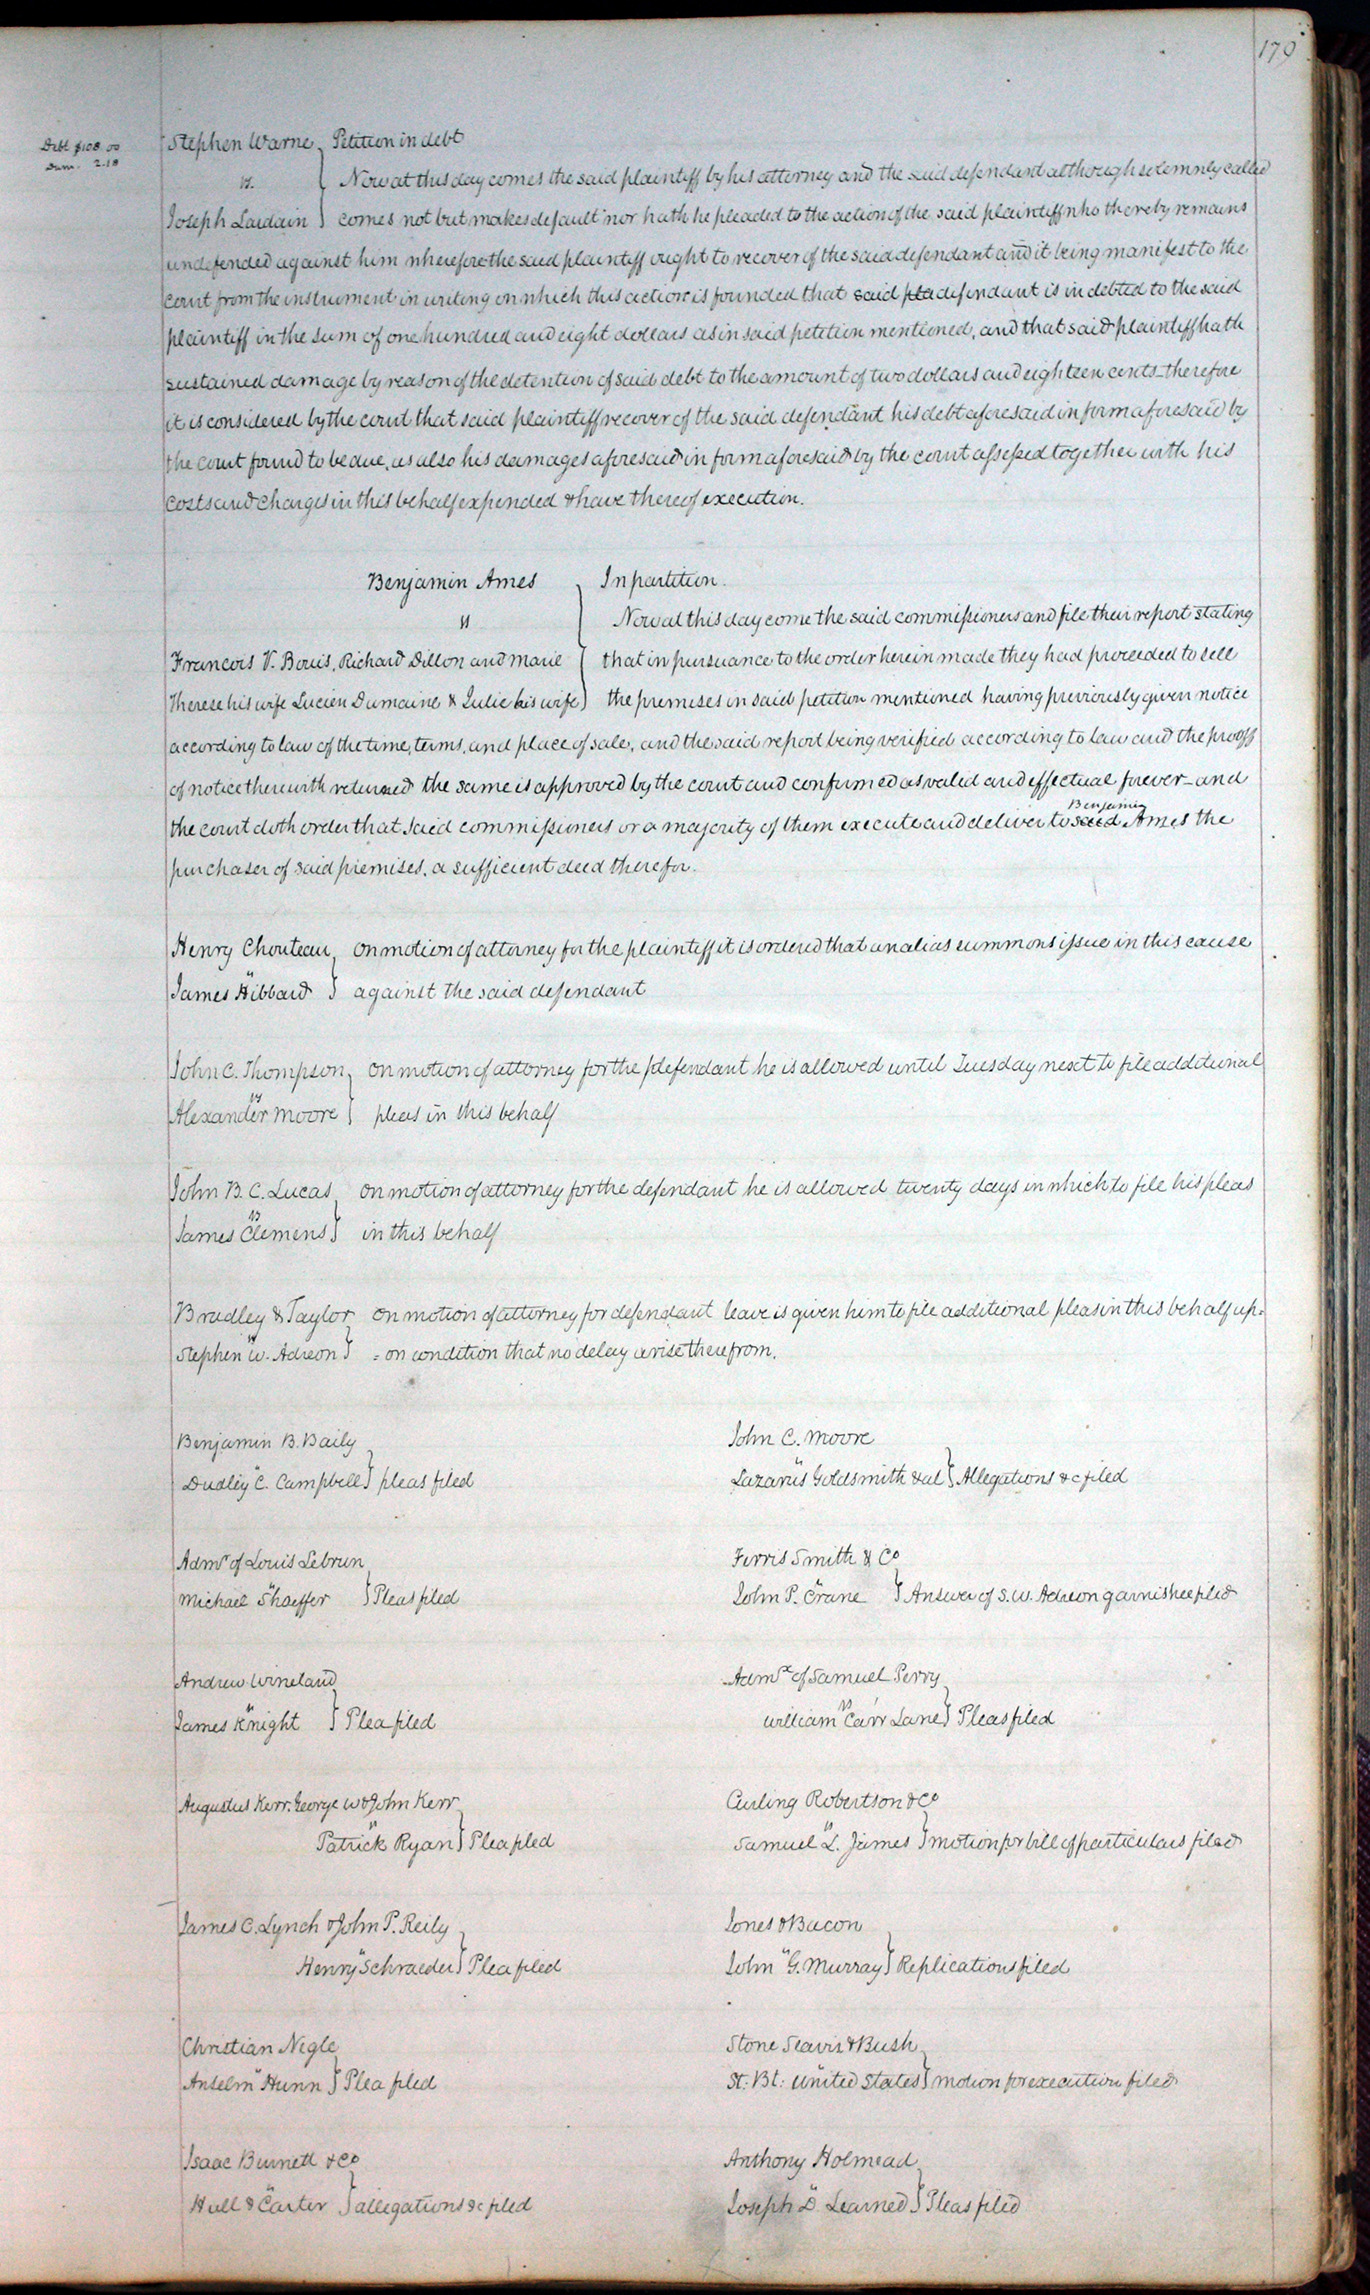 179
Debt $108.00
Dam. 2.18
Stephen Warne Petition in debt
vs. Now at this day comes the said plaintiff by his attorney and the said defendant although solemnly called
Joseph Lardain comes not but makes default nor hath he pleaded to the action of the said plaintiff who thereby remains
undefended against him wherefore the said plaintiff ought to recover of the said defendant and it being manifest to the
court from the instrument in writing on which this action is founded that said pla defendant is indebted to the said
plaintiff in the sum of one hundred and eight dollars as in said petition mentioned, and that said plaintiff hath
sustained damage by reason of the detention of said debt to the amount of two dollars and eighteen cents - therefore
it is considered by the court that said plaintiff recover of the said defendant his debt aforesaid in form aforesaid by
the court found to be due, as also his damages aforesaid in form aforesaid by the court assessed together with his
costs and charges in this behalf expended & have thereof execution.
Benjamin Ames In partition.
vs Now at this day come the said commissioners and file their report stating
Francois V. Bouis, Richard Dillon and Marie that in pursuance to the order herein made they had proceeded to sell
Therese his wife Lucien Dumaine & Julie his wife the premises in said petition mentioned having previously given notice
according to law of the time, terms, and place of sale, and the said report being verified according to law and the prooff
of notice therewith returned the same is approved by the court and confirmed as valid and effectual forever - and
Benjamin
the court doth order that said commissioners or a majority of them execute and deliver to said Ames the
purchaser of said premises, a sufficient deed therefor.
Henry Chouteau On motion of attorney for the plaintiff it is ordered that an alias summons issue in this cause
vs
James Hibbard against the said defendant
John C. Thompson On motion of attorney for the defendant he is allowed until Tuesday next to file additional
vs
Alexander Moore pleas in this behalf
John B. C. Lucas On motion of attorney for the defendant he is allowed twenty days in which to file his pleas
vs
James Clemens in this behalf
Bradley & Taylor On motion of attorney for defendant leave is given him to file additional pleas in this behalf up=
vs
Stephen W. Adreon =on condition that no delay arise therefrom.
Benjamin B. Baily
vs
Dudley C. Campbell pleas filed
John C. Moore
vs
Lazarus Goldsmith & al Allegations &c filed
Admr of Louis Lebrun
vs
Michael Shaeffer Pleas filed
Ferris Smith & Co
vs
John P. Crane Answer of S. W. Adreon garnishee filed
Andrew Wineland
vs
James Knight Plea filed
Admx of Samuel Perry
vs
William Carr Lane Pleas filed
Augustus Kerr. George W & John Kerr
vs
Patrick Ryan Plea filed
Curling Robertson & Co
vs
Samuel L. James motion for bill of particulars filed
James C. Lynch & John P. Reily
vs
Henry Schraeder Plea filed
Jones & Bacon
vs
John G. Murray Replications filed
Christian Negle
vs
Anselm Hunn Plea filed
Stone Seavis & Bush
vs
St: Bt: United States motion for execution filed
Isaac Burnett & Co
vs
Hall & Carter allegations &c filed
Anthony Holmead
vs
Joseph D. Learned Pleas filed